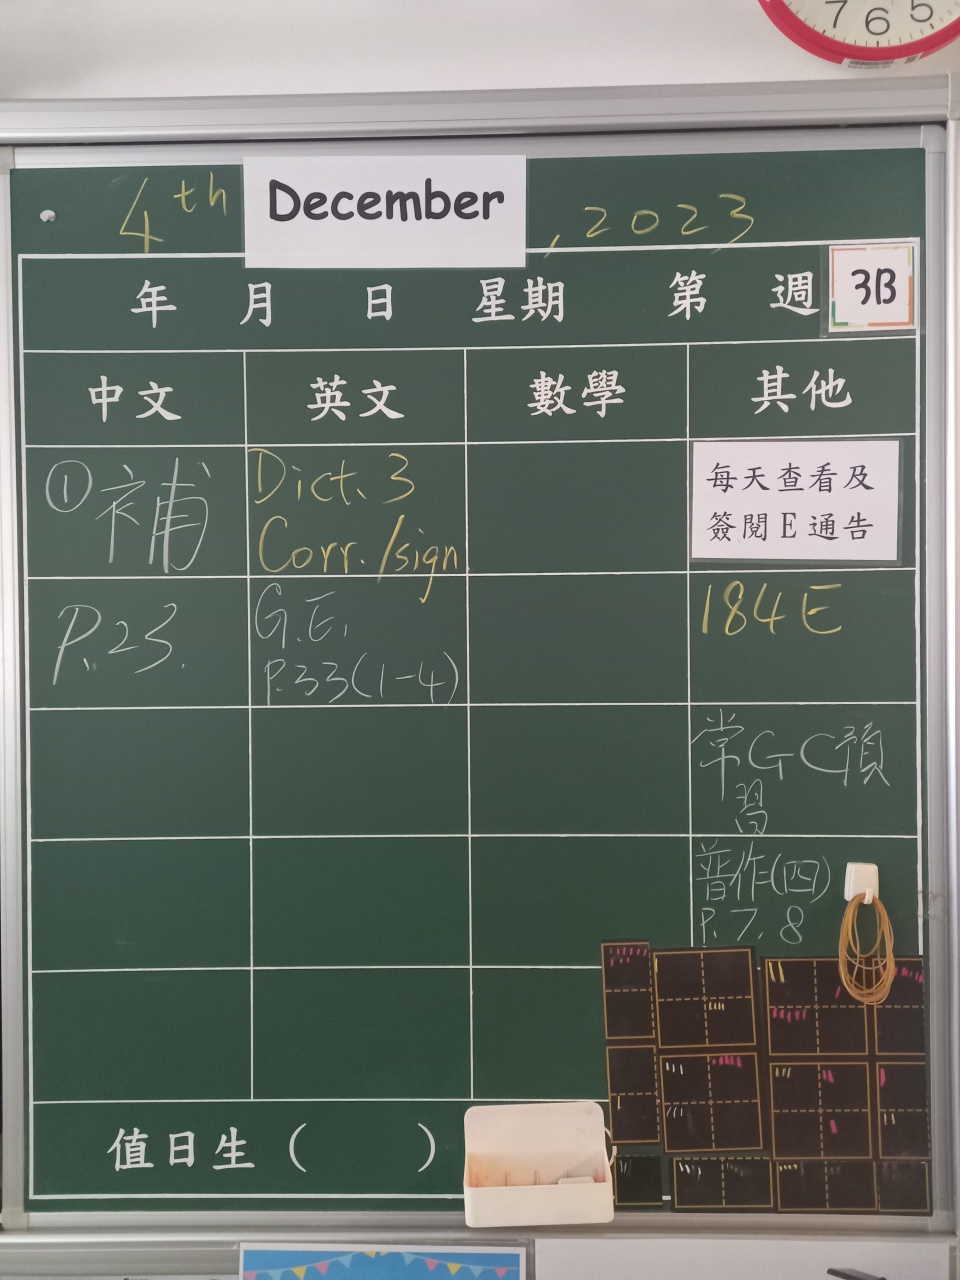 7 6 5
4th December, 2023
年 月 日 星期 第 週 3B
中文 英文 數學 其他
①補
Dict. 3
Corr./sign
每天查看及
簽閱E通告
P.23.
G.E.
P.33(1-4)
184E
常GC預
習
普作(四)
P.7.8
值日生( )